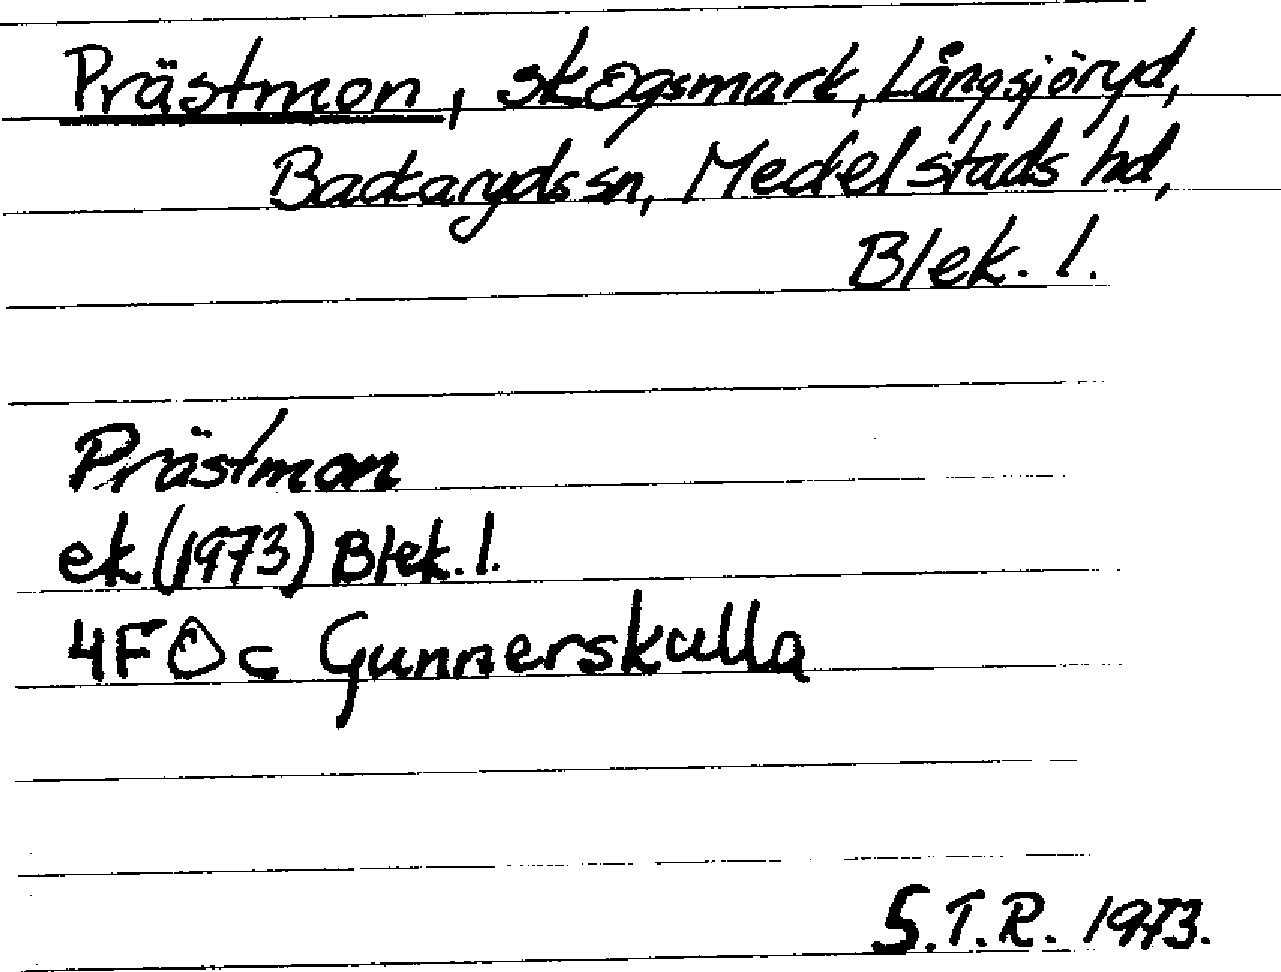 Prästmon, skogsmark, Långsjöryd,
Backaryds sn, Medelstads hd,
Blek. l.
Prästmon
ek (1973) Blek. l.
4F 0c Gunnerskulla
S.T.R. 1973.